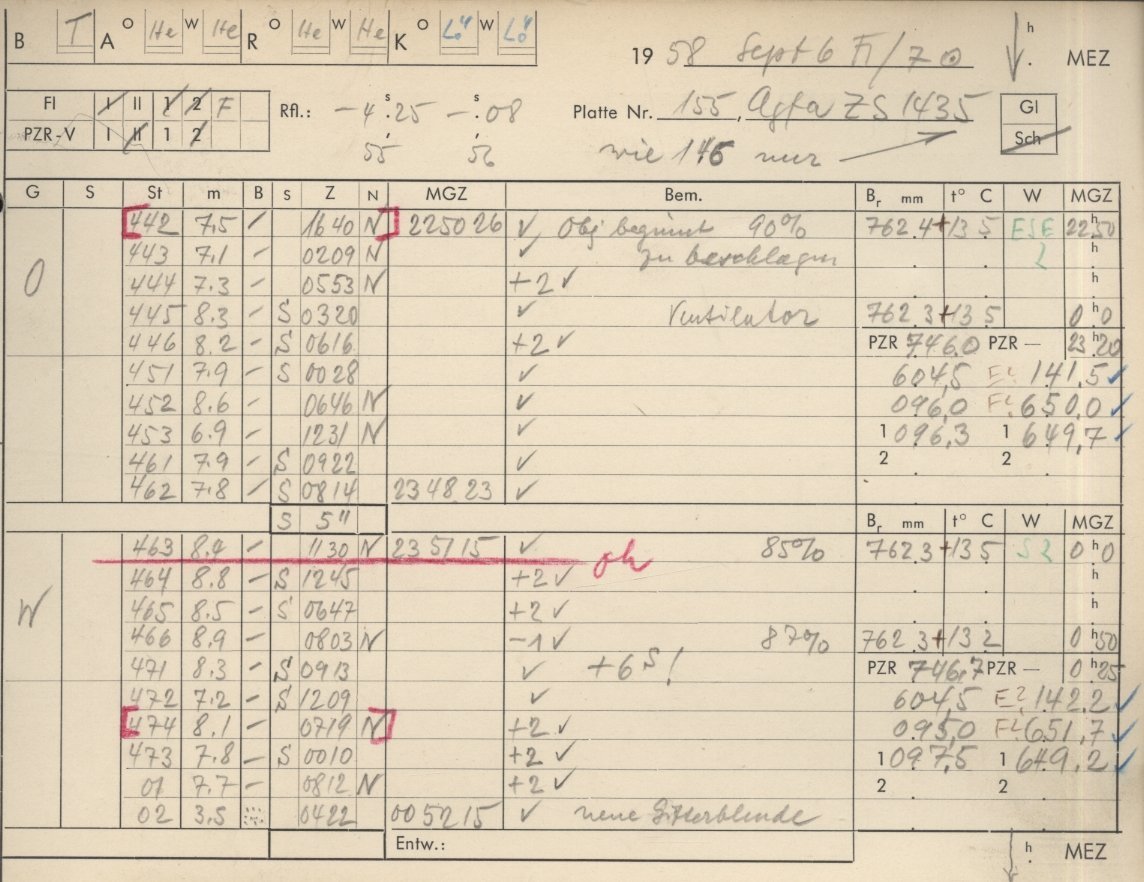 B T A O He W He R O He W He K O Lö W Lö h
19 58 Sept 6 MEZ
FI I II 1 2 F Rfl.: -4 s.25 -s.08 Platte Nr. 155, Agfa ZS 1435 Gl
PZR-V I II 1 2 55 56 wie 146 nur Sch
G S St m B S Z N MGZ Bem. Br mm t° C W MGZ
[442 7.5 / 1640 N] 225026 ✓ Obj beginnt 90% 762.4 +13 5 ESE 22h50
443 7.1 - 0209 N ✓ zu beschlagen 2 h
O 444 7.3 - 0553 N +2 ✓ h
445 8.3 - S 0320 ✓ Ventilator 762.3 +13 5 0h0
446 8.2 - S 0616 +2 ✓ PZR 746.0 PZR — 23h20
451 7.9 - S 0028 ✓ 604,5 E? 141.5 ✓
452 8.6 - 0646 N ✓ 096,0 650,0 ✓
453 6.9 - 1231 N ✓ 1 096,3 1 649,7 ✓
461 7.9 - S 0922 ✓ 2 2
462 7.8 - S 0814 234823 ✓
S 5" Br mm t° C W MGZ
463 8.4 - 1130 N 235115 ✓ 85% 762.3 +13 5 S2 0h0
464 8.8 - S 1245 +2 ✓ h
W 465 8.5 - S 0647 +2 ✓ h
466 8.9 - 0803 N -1 ✓ 87% 762.3 +13 2 0h50
471 8.3 - S 0913 ✓ +6 S! PZR 746,7 PZR — 0h25
472 7.2 - S 1209 ✓ 604,5 E? 142.2 ✓
[474 8.1 - 0719 N] +2 ✓ 095,0 651,7 ✓
473 7.8 - S 0010 +2 ✓ 1 097,5 1 649,2 ✓
01 7.7 - 0812 N +2 ✓ 2 2
02 3.5 0422 005215 ✓ neue Gitterblende
Entw.: h MEZ